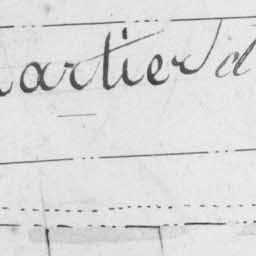 artier d